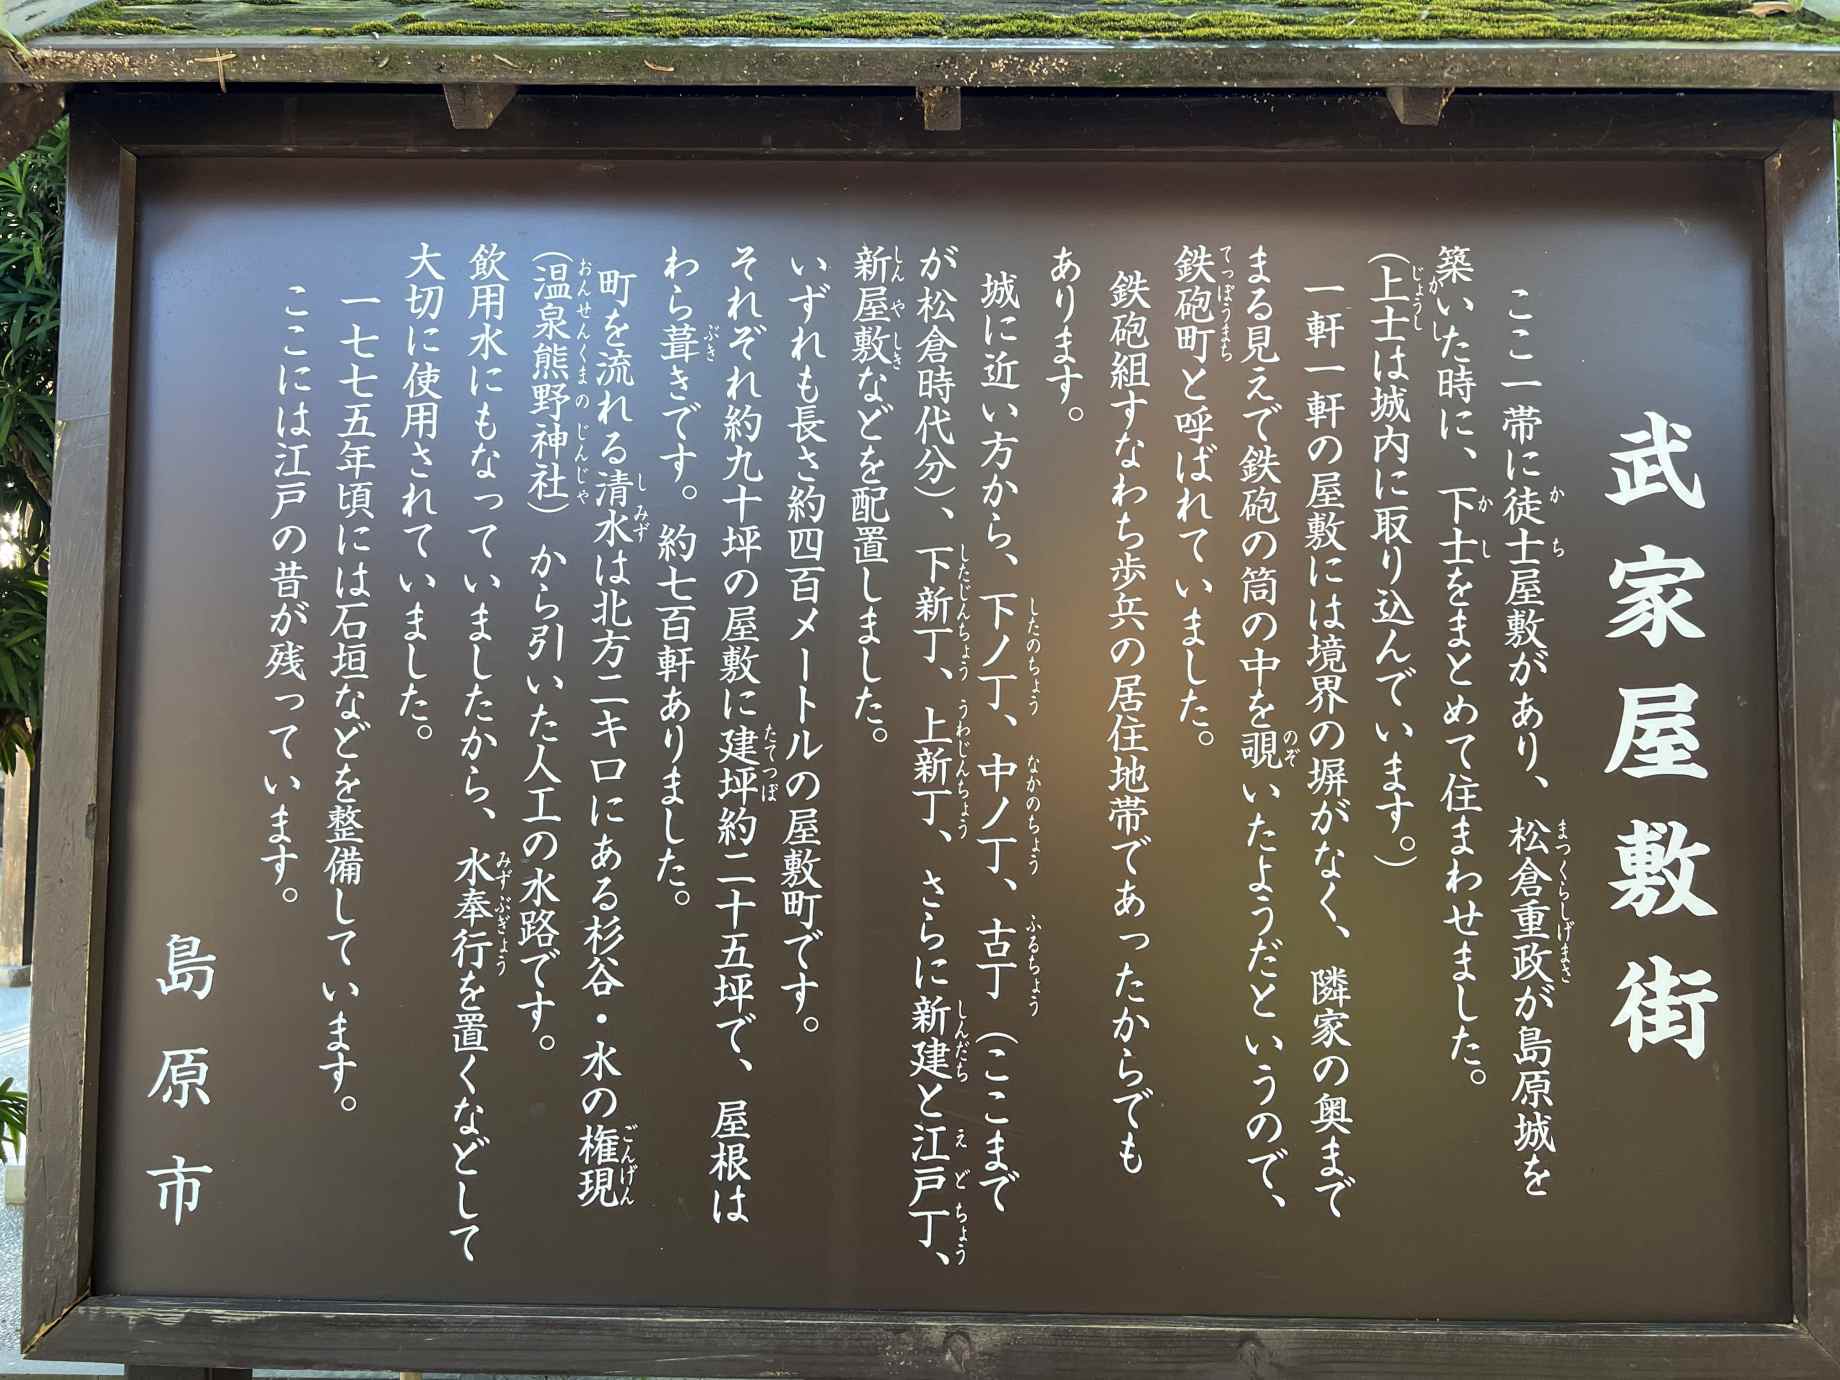 武家屋敷街
ここ一帯に徒士屋敷があり、松倉重政が島原城を
築いた時に、下士をまとめて住まわせました。
(上士は城内に取り込んでいます。)
一軒一軒の屋敷には境界の塀がなく、隣家の奥まで
まる見えで鉄砲の筒の中を覗いたようだというので、
鉄砲町と呼ばれていました。
鉄砲組すなわち歩兵の居住地帯であったからでも
あります。
城に近い方から、下ノ丁、中ノ丁、古丁(ここまで
が松倉時代分)、下新丁、上新丁、さらに新建と江戸丁、
新屋敷などを配置しました。
いずれも長さ約四百メートルの屋敷町です。
それぞれ約九十坪の屋敷に建坪約二十五坪で、屋根は
わら葺きです。約七百軒ありました。
町を流れる清水は北方二キロにある杉谷・水の権現
(温泉熊野神社)から引いた人工の水路です。
飲用水にもなっていましたから、水奉行を置くなどして
大切に使用されていました。
一七七五年頃には石垣などを整備しています。
ここには江戸の昔が残っています。
島原市